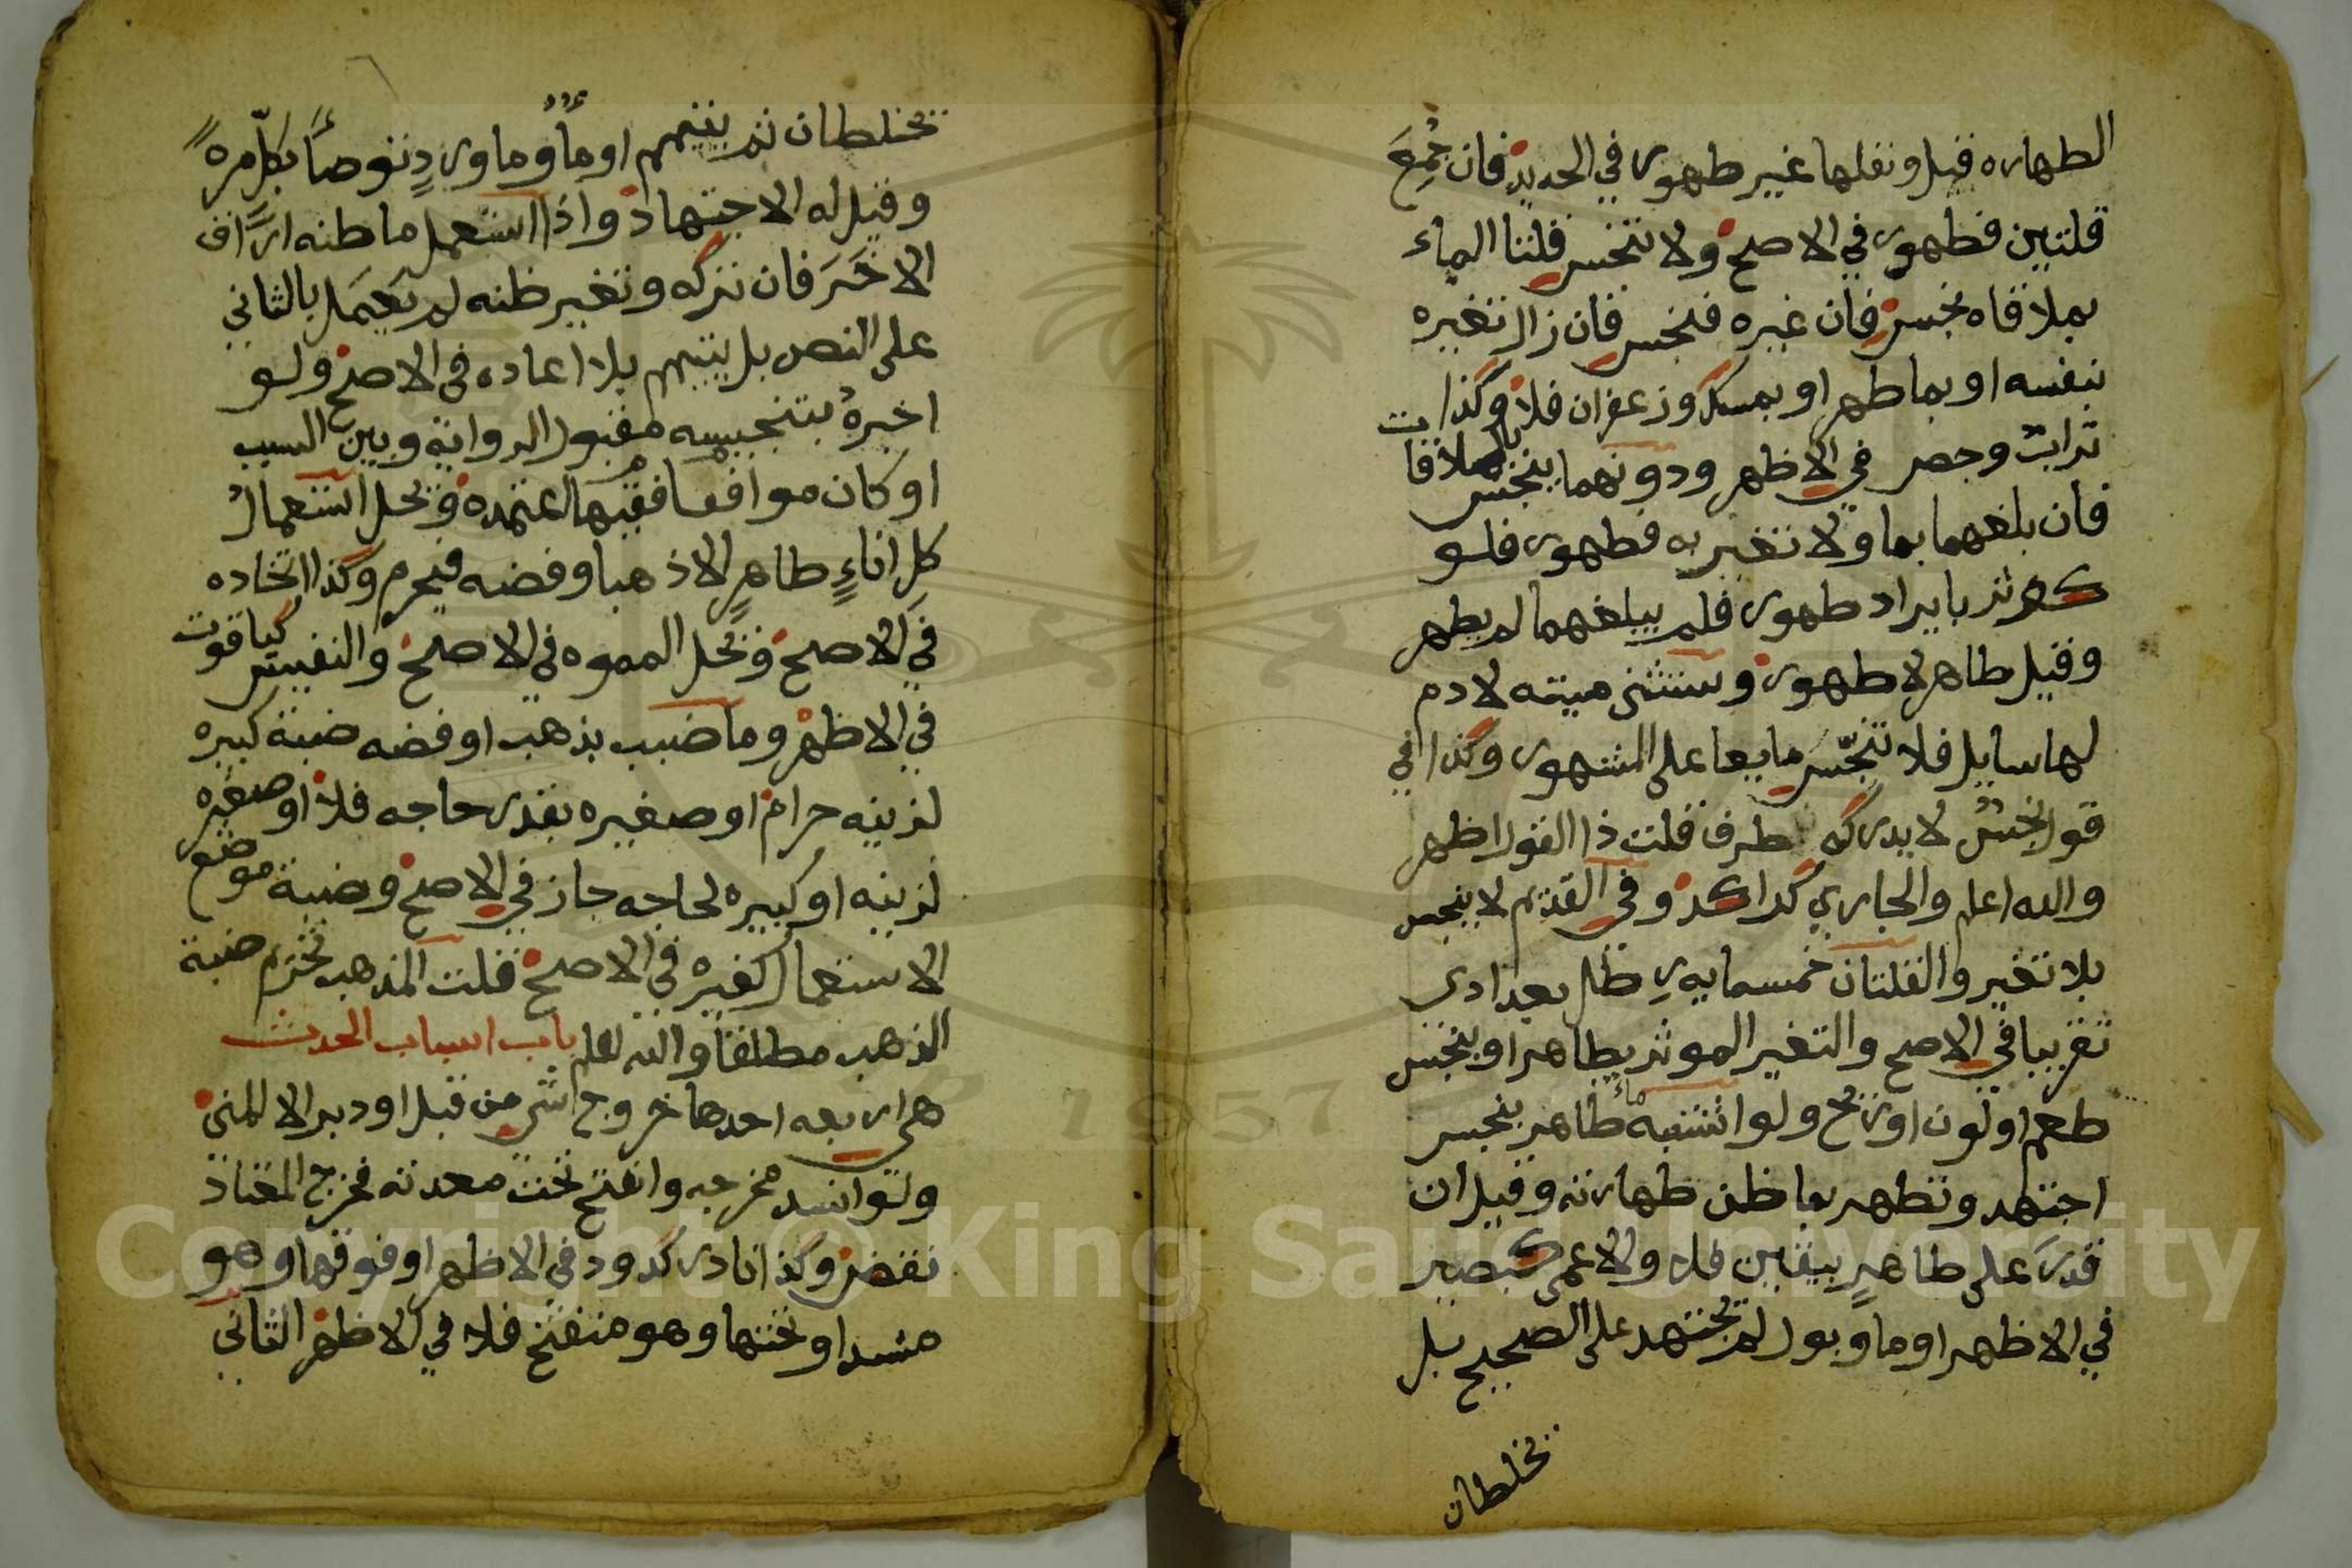 الطهاره قيل ونفلها غير طهور في الجديد فان جُمِعَ
قلتين فطهور في الاصح ولا تنجس قلتا الماء
بملاقاه نجس فان غيره فنجس فان زال تغيره
بنفسه او بماطهر او بمسك وزعفران فلا وكذا
تراب وجص في الاظهر ودونهما ينجس بالملاقات
فان بلغهما بما ولا تغير به فطهور فلو
كوثر بايراد طهور فلم يبلغهما لم يطهر
وقيل طاهر لا طهور وستثنى ميته لا دم
لها سايل فلا تنجّس مايعا على المشهور وكذا في
قول نجس لا يدركه طرف قلت ذا القول اظهر
والله اعلم والجاري كراكد وفي القديم لا ينجس
بلا تغير والقلتان خمسمايه رطل بغدادي
تقريبا في الاصح والتغير الموثر بطاهر او بنجس
طعم او لون او ريح ولو اشتبه ماء طاهر بنجس
اجتهد وتطهر بما ظن طهارته وقيل ان
قدر على طاهرٍ بيقين فلا والاعمى كبصير
في الاظهر او ما وبول لم يجتهد على الصحيح بل
تخلطان
تخلطان ثم يتيمم او ماءٌ وماورد توضأ بكلّ مرهً
وقيل له الاجتهاد واذا استعمل ماظنه اراف
الاخَرَ فان تركه وتغير ظنه لم يَعمَل بالثاني
على النص بل يتيمم بلا اعاده في الاصح ولو
اخبرهُ بتنجيسه مقبول الروايةِ وبين السبب
او كان موافقا فقيها اعتمده ويحل استعمالُ
كل اناءٍ طاهرٍ الا ذهبا وفضه فيحرم وكذا اتخاده
في الاصح ويحل المموه في الاصح والنفيس كياقوت
في الاظهر وما ضبب بذهب او فضه ضبة كبيره
لزينه حرام او صغيره بقدر حاجه فلا او صغيره
لزينه او كبيره لحاجه جاز في الاصح وضبة موضع
الاستعمال كغيره في الاصح قلت المذهب تحرم ضبة
الذهب مطلقا والله اعلم باب اسباب الحدث
هي اربعه احدها خروج شي من قبل او دبر الا المني
ولو انسد مخرجه وانفتح تحت معدته فخرج المعتاد
نقض وكذا نادر كدود في الاظهر او فوقها وهو
منسد او تحتها وهو منفتح فلا في الاظهر الثاني
Copyright © King Saud University
1957